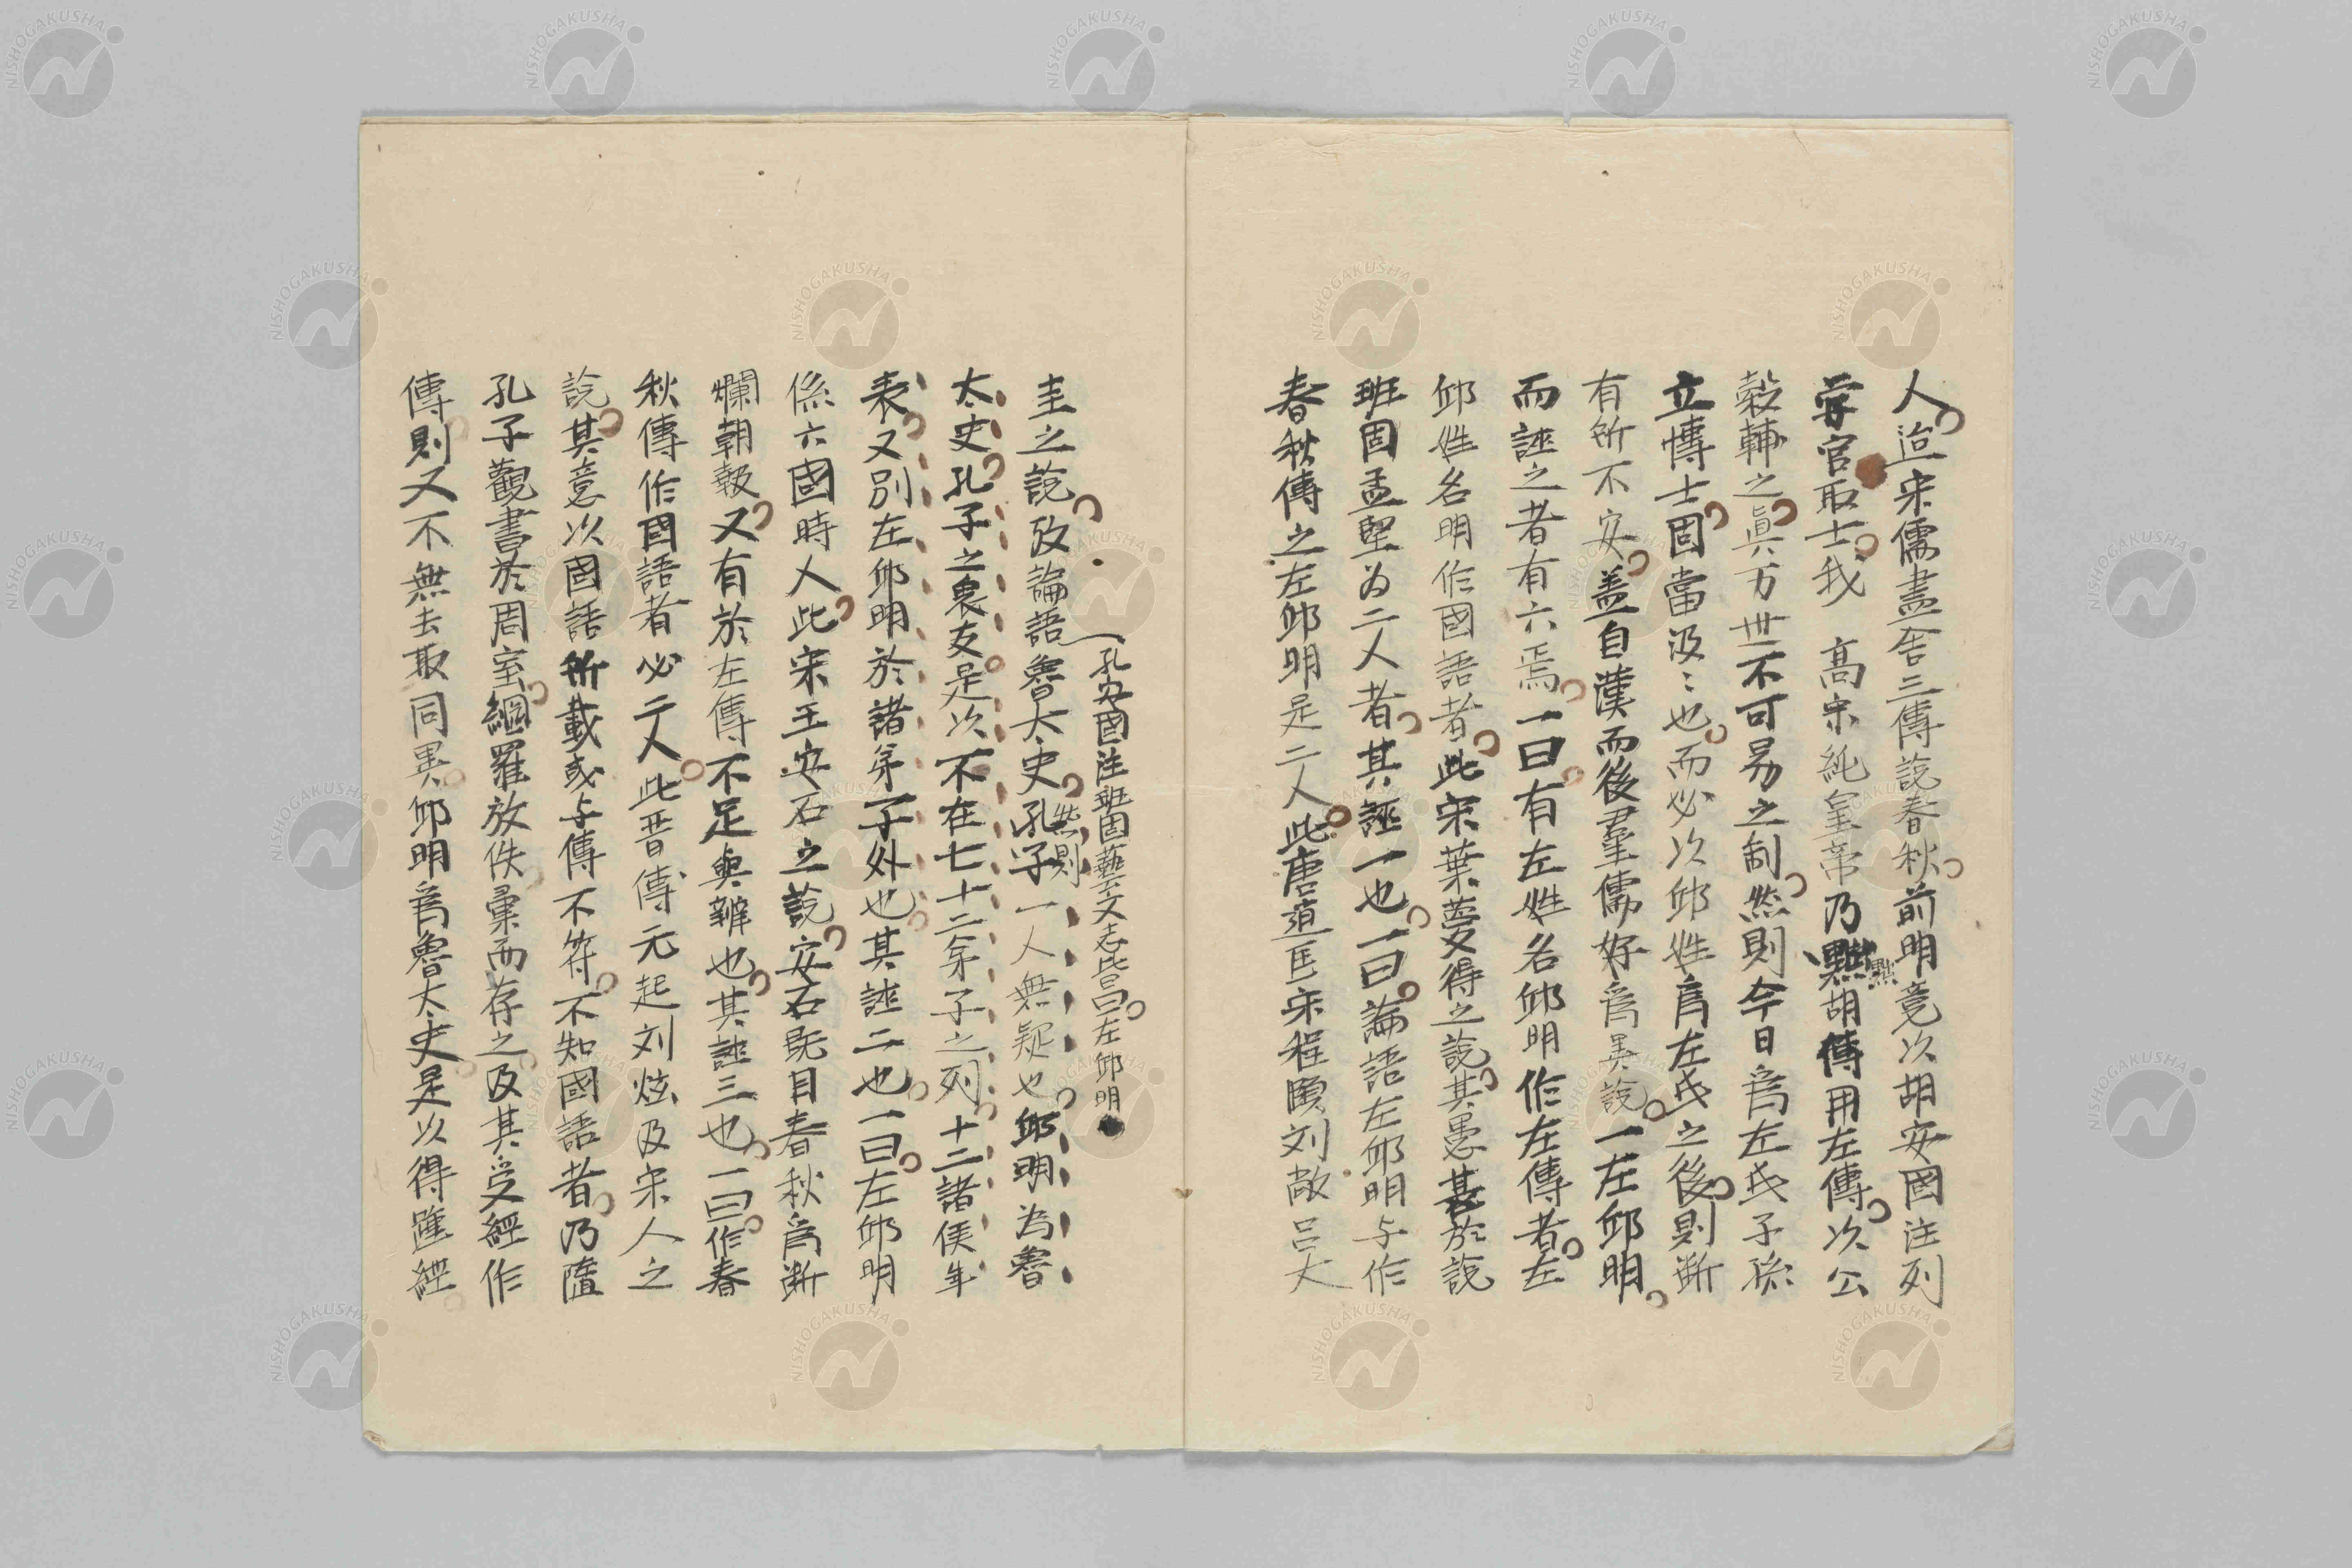 人迨宋儒盡舍三傳說春秋前明竟以胡安國注列
學官取士我　高宗純皇帝乃黜胡傳用左傳以公
黜
穀輔之眞万世不可易之制然則今日爲左氏子孫
立博士固當汲〻也而必以邱姓爲左氏之後則斷
有所不安蓋自漢而後羣儒好爲異說一左邱明
而誣之者有六焉一曰有左姓名邱明作左傳者左
邱姓名明作國語者此宋葉夢得之說其愚甚於說
班固孟堅为二人者其誣一也一曰論語左邱明与作
春秋傳之左邱明是二人此唐趙匡宋程頤刘敞呂大
孔安國注班固藝文志皆曰左邱明
圭之說攷論語魯太史孔子一人無疑也邱明为魯
然則
太史孔子之衷友是以不在七十二弟子之列十二諸侯年
表又別左邱明於諸弟子外也其誣二也一曰左邱明
係六國時人此宋王安石之說安石既目春秋爲斷
爛朝報又有於左傳不足與辨也其誣三也一曰作春
秋傳作國語者必二人此晋傅元起刘炫及宋人之
說其意以國語所載或与傳不符不知國語者乃隨
孔子觀書於周室網羅放佚彙而存之及其受經作
傳則又不無去取同異邱明爲魯太史是以得進經
NISHOGAKUSHA